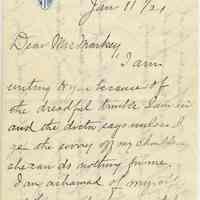 Jan 11/24
Dear Mrs Markey
I am
writing to you because of
the dreadful trouble I am in
and the doctor says unless I
get the worry off my
she can do nothing for me.
I am ashamed of myself